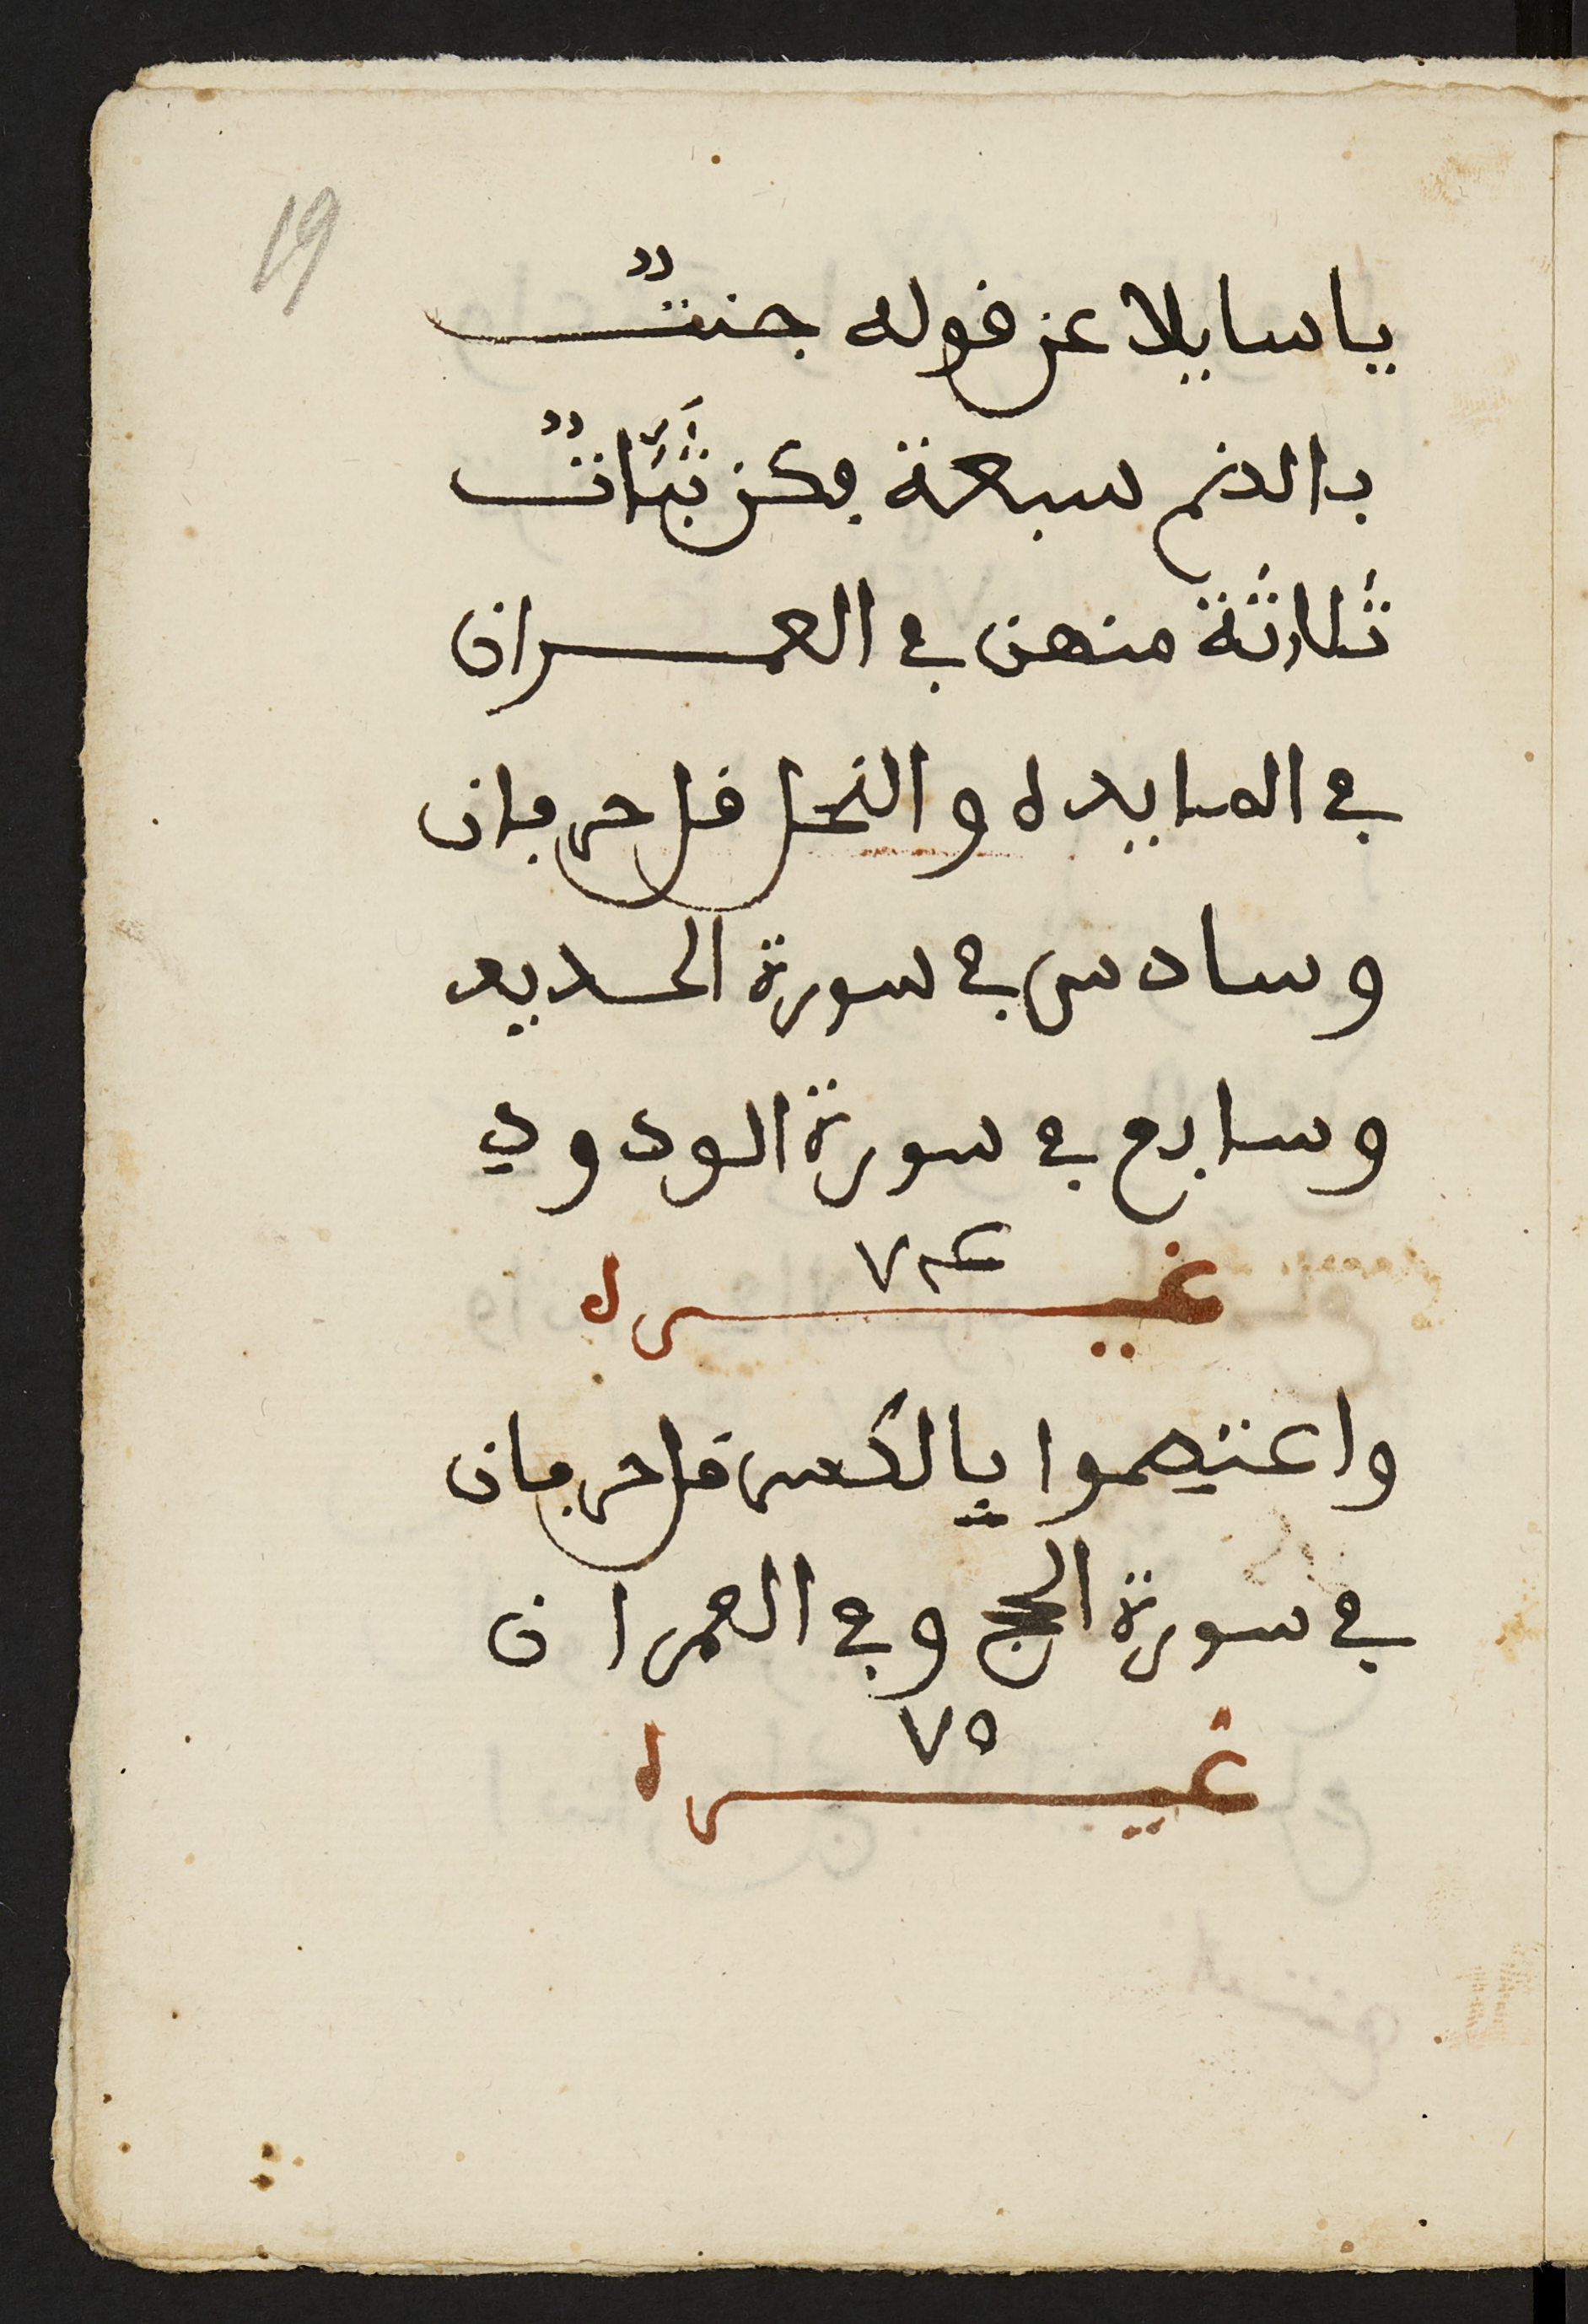 19
يا سايلا عن قوله جنتٌ
بالضم سبعة فكن ثَبَّاتٌ
ثلاثة منهن في العمران
في المايده والنحل قل حرفان
وسادس في سورة الحديد
وسابع في سورة الودودي
٧٤
غيره
واعتصموا بالكسر قل حرفان
في سورة الحج وفي العمران
٧٥
غيره